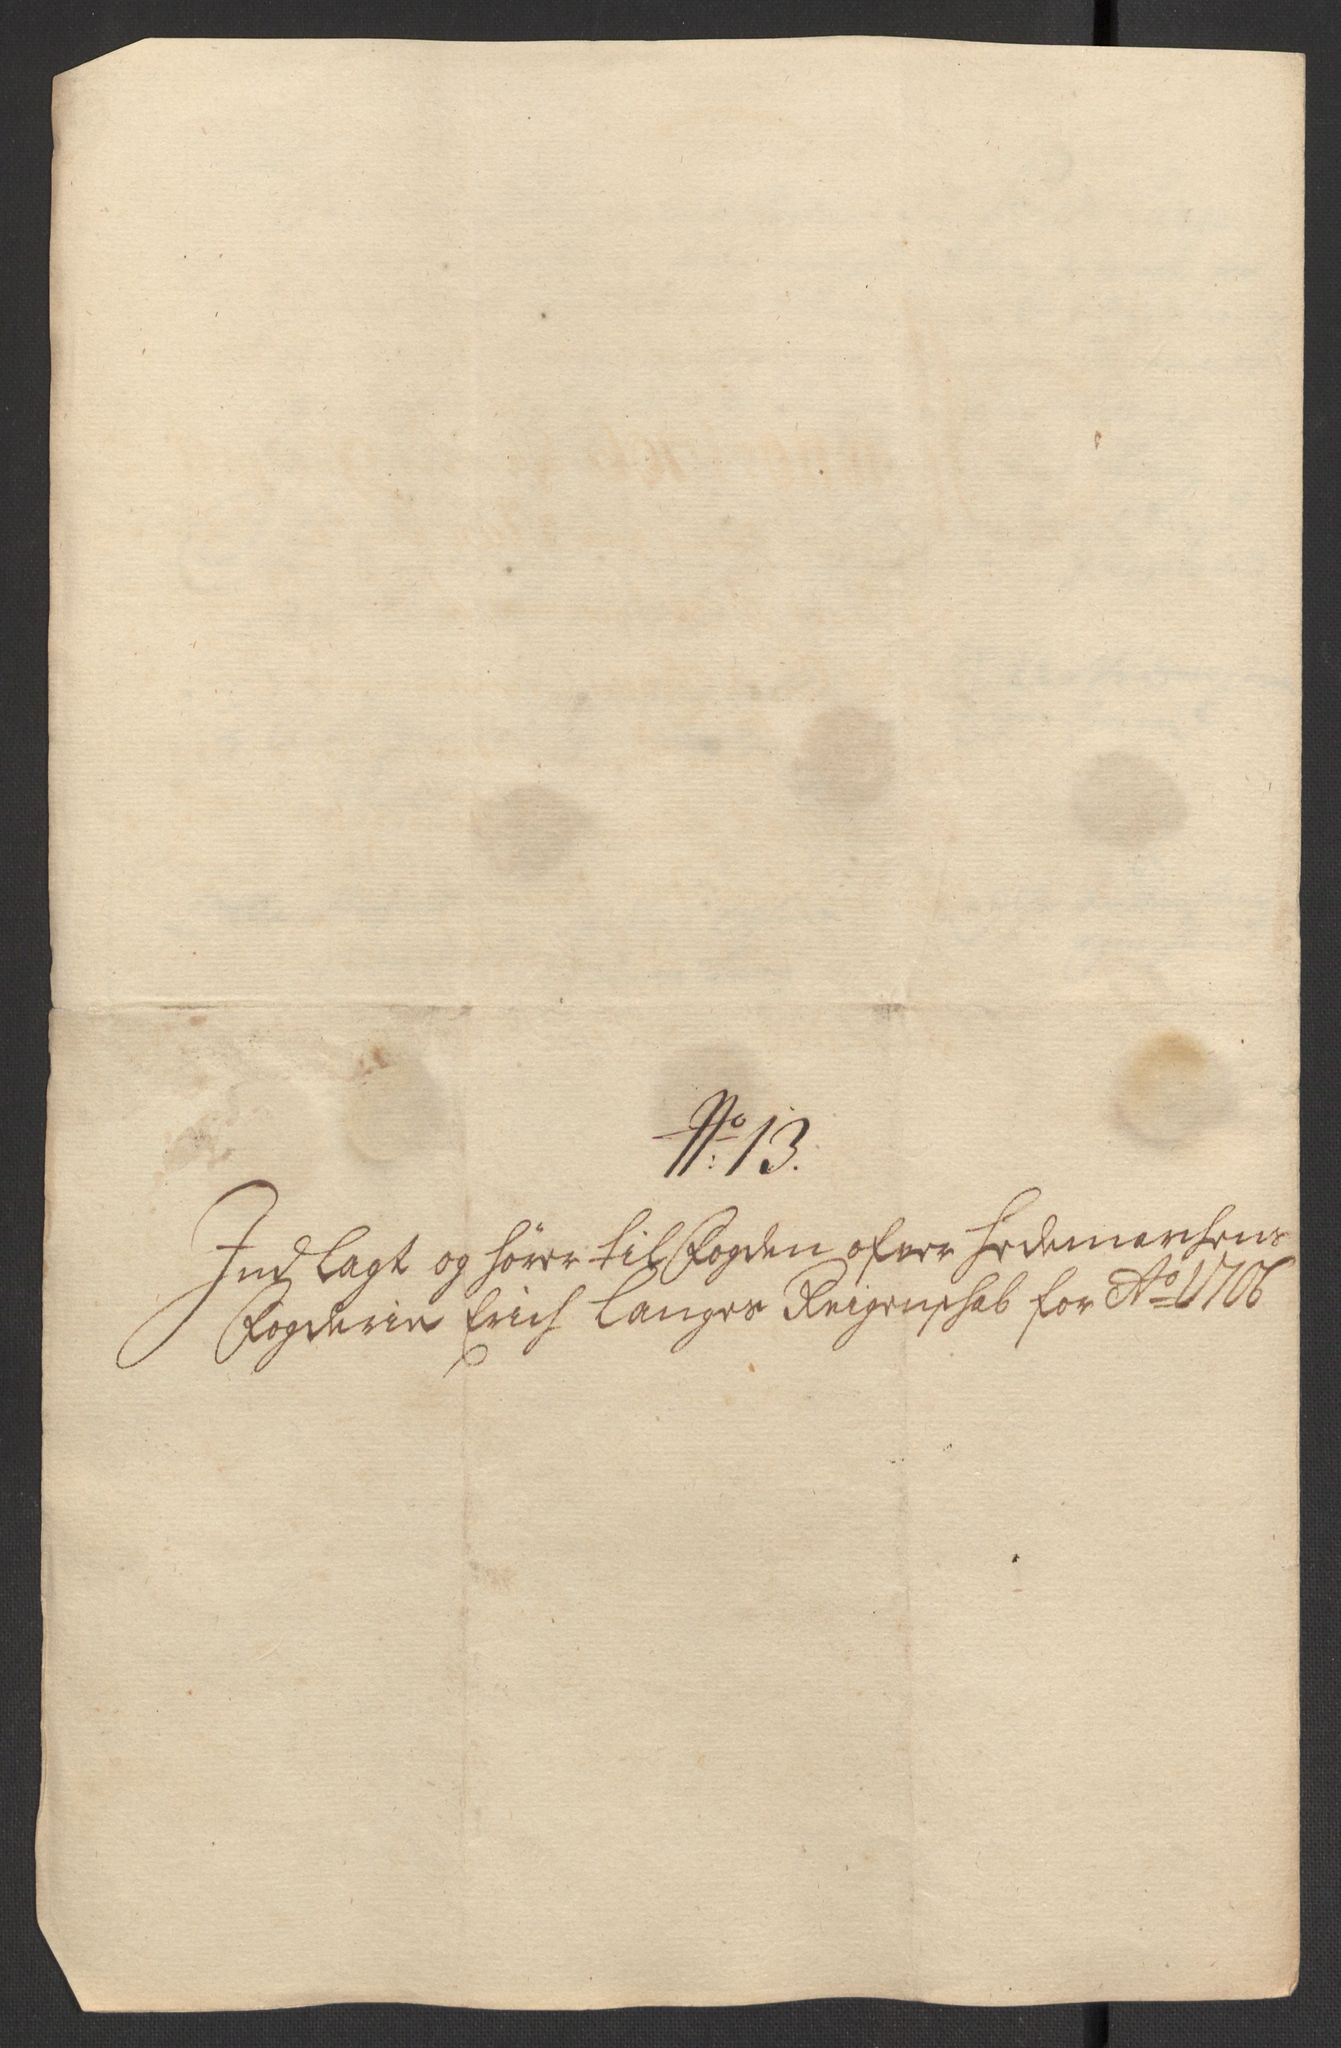 No: 13.
Ind lagt og hörer til Fogden ofver Hedemarchens
Fogderie Erich Langes Reigenschab for Ao 1706